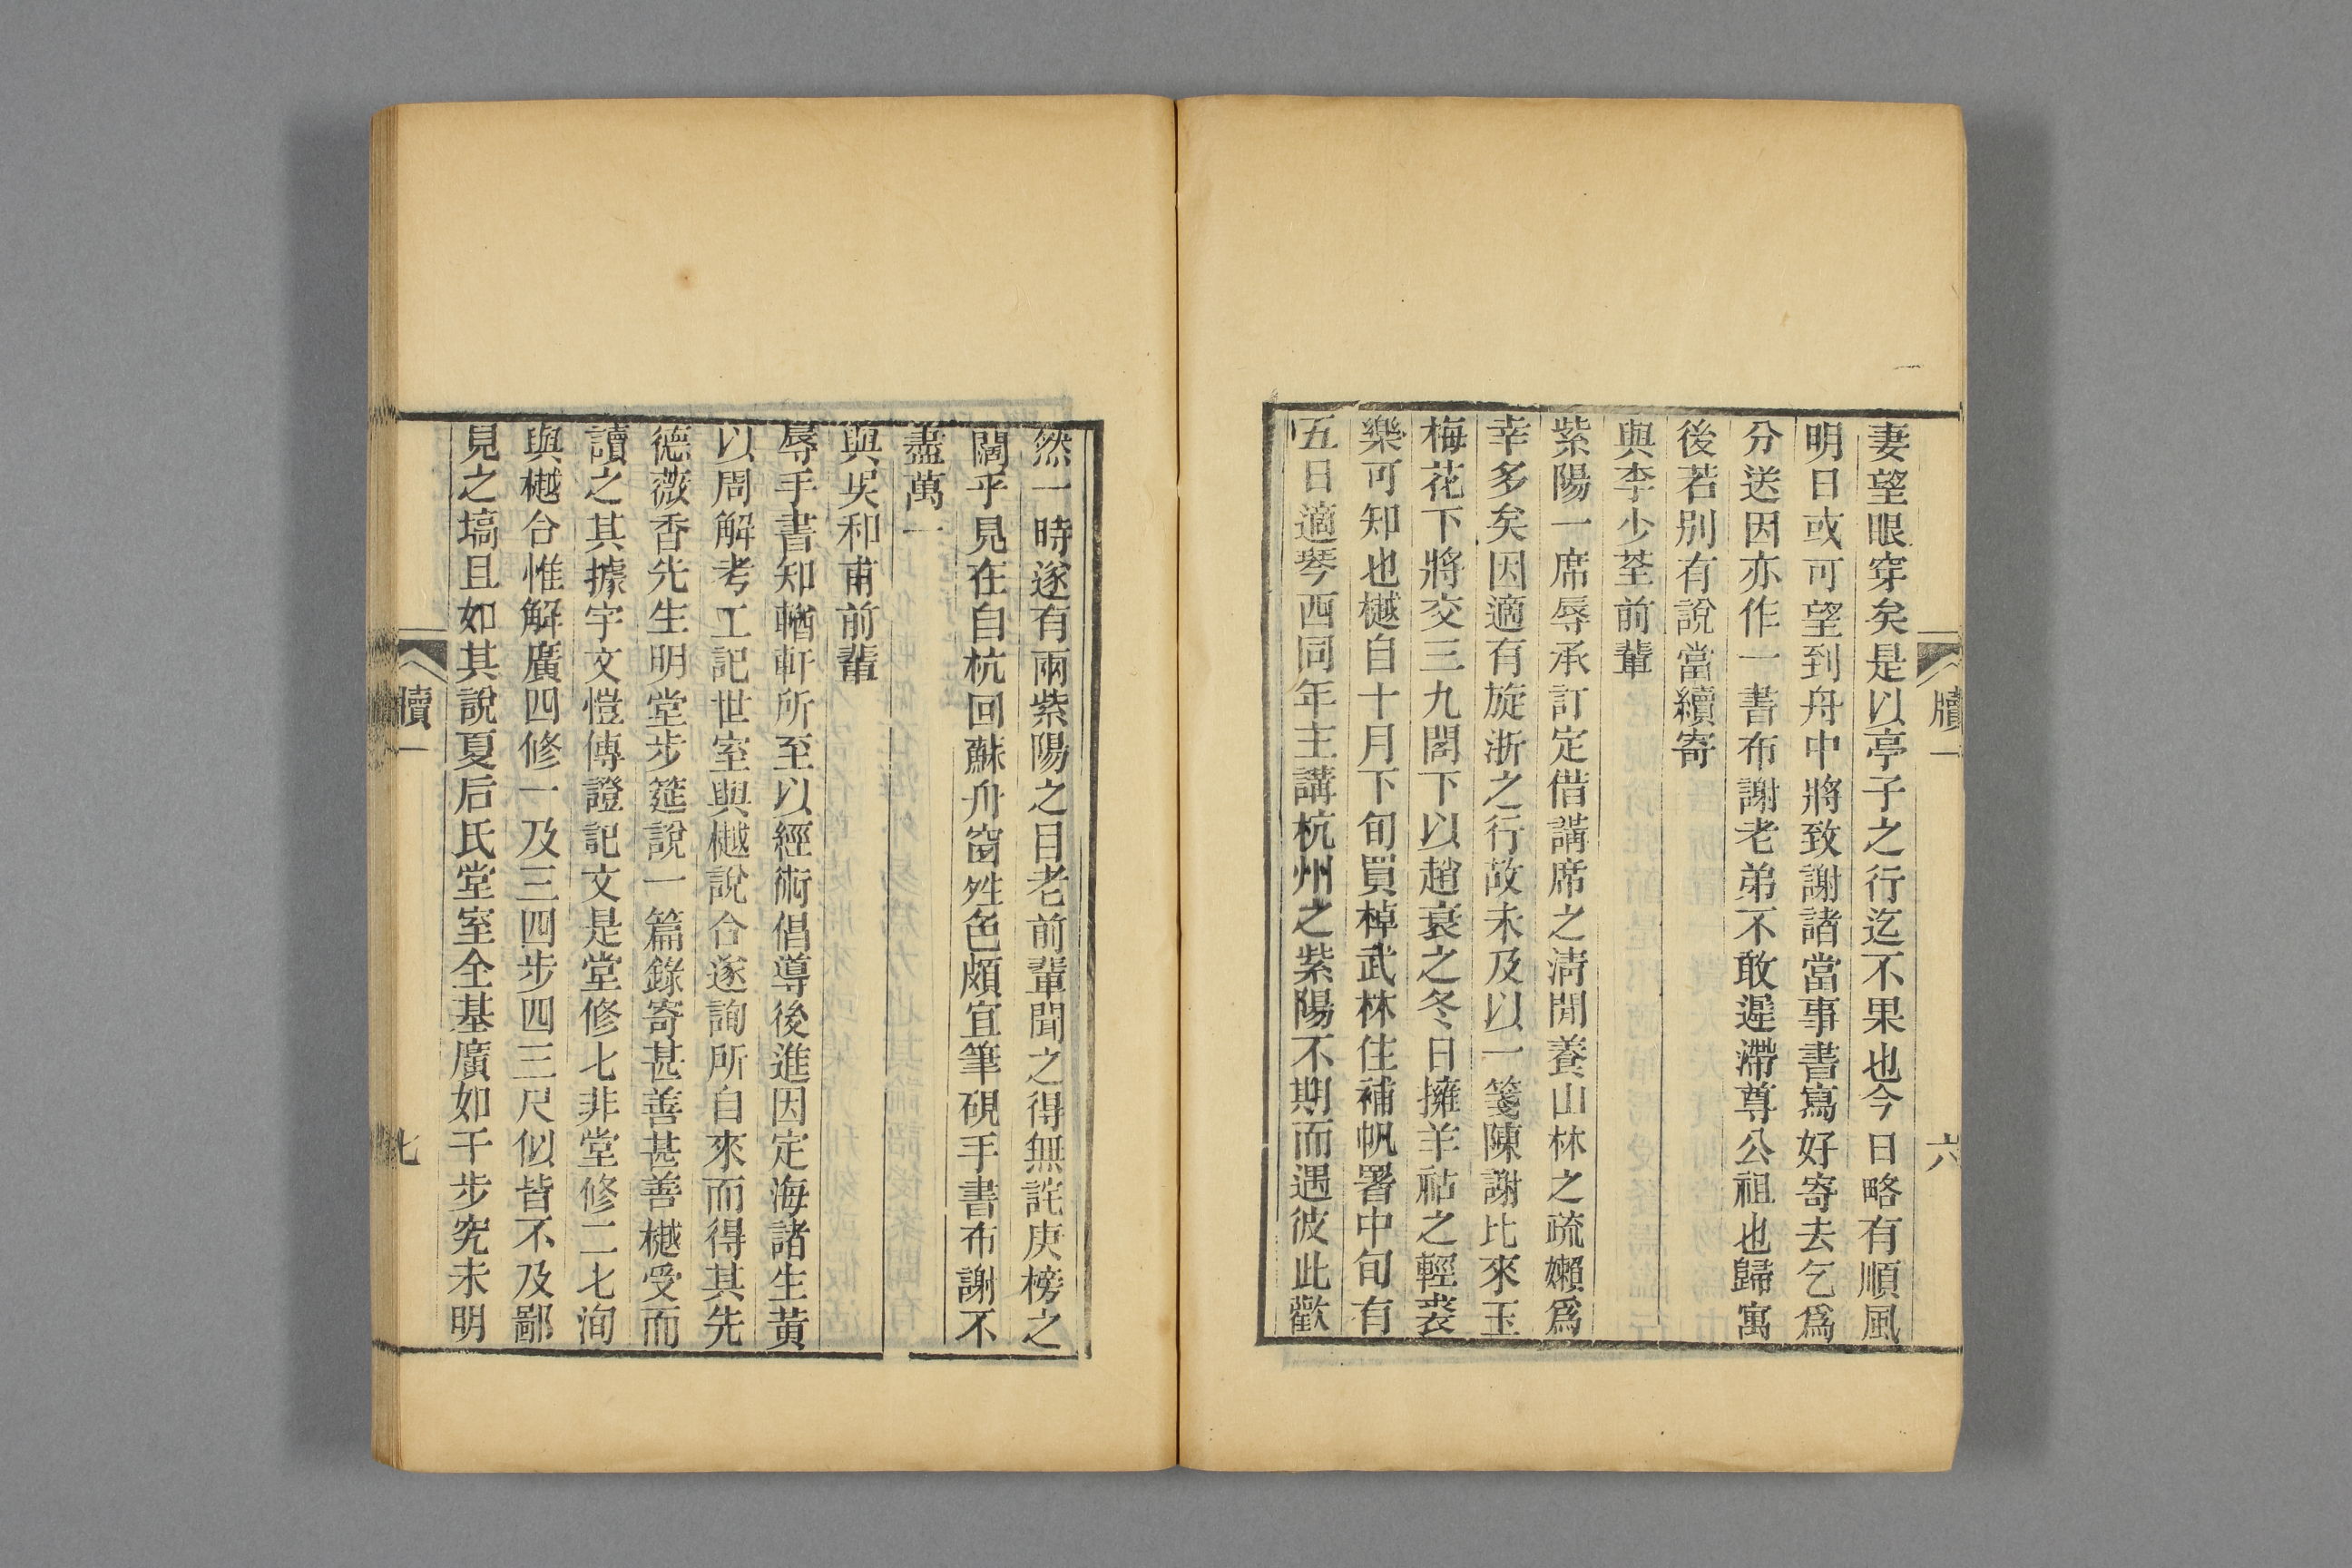 牘一
六
妻望眼穿矣是以亭子之行迄不果也今日略有順風
明日或可望到舟中將致謝諸當事書寫好寄去乞爲
分送因亦作一書布謝老弟不敢遲滯尊公祖也歸寓
後若別有說當續寄
與李少荃前輩
紫陽一席辱承訂定借講席之淸閒養山林之疏嬾爲
幸多矣因適有旋浙之行故未及以一箋陳謝比來玉
梅花下將交三九閣下以趙衰之冬日擁羊祜之輕裘
樂可知也樾自十月下旬買棹武林住補帆署中旬有
五日適琴西同年主講杭州之紫陽不期而遇彼此歡
然一時遂有兩紫陽之目老前輩聞之得無詫庚榜之
闊乎見在自杭回蘇舟窗甡色頗宜筆硯手書布謝不
盡萬一
與吳和甫前輩
辱手書知輶軒所至以經術倡導後進因定海諸生黃
以周解考工記世室與樾說合遂詢所自來而得其先
德薇香先生明堂步筵說一篇錄寄甚善甚善樾受而
讀之其據宇文愷傳證記文是堂修七非堂修二七洵
與樾合惟解廣四修一及三四步四三尺似皆不及鄙
見之塙且如其說夏后氏堂室全基廣如干步究未明
牘一
七